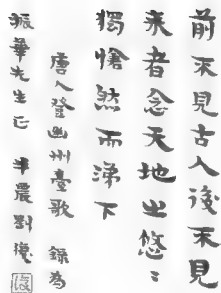 前不見古人後不見
来者念天地之悠〻
獨愴然而涕下
唐人登幽州臺歌 錄為
振華先生正 半農劉復